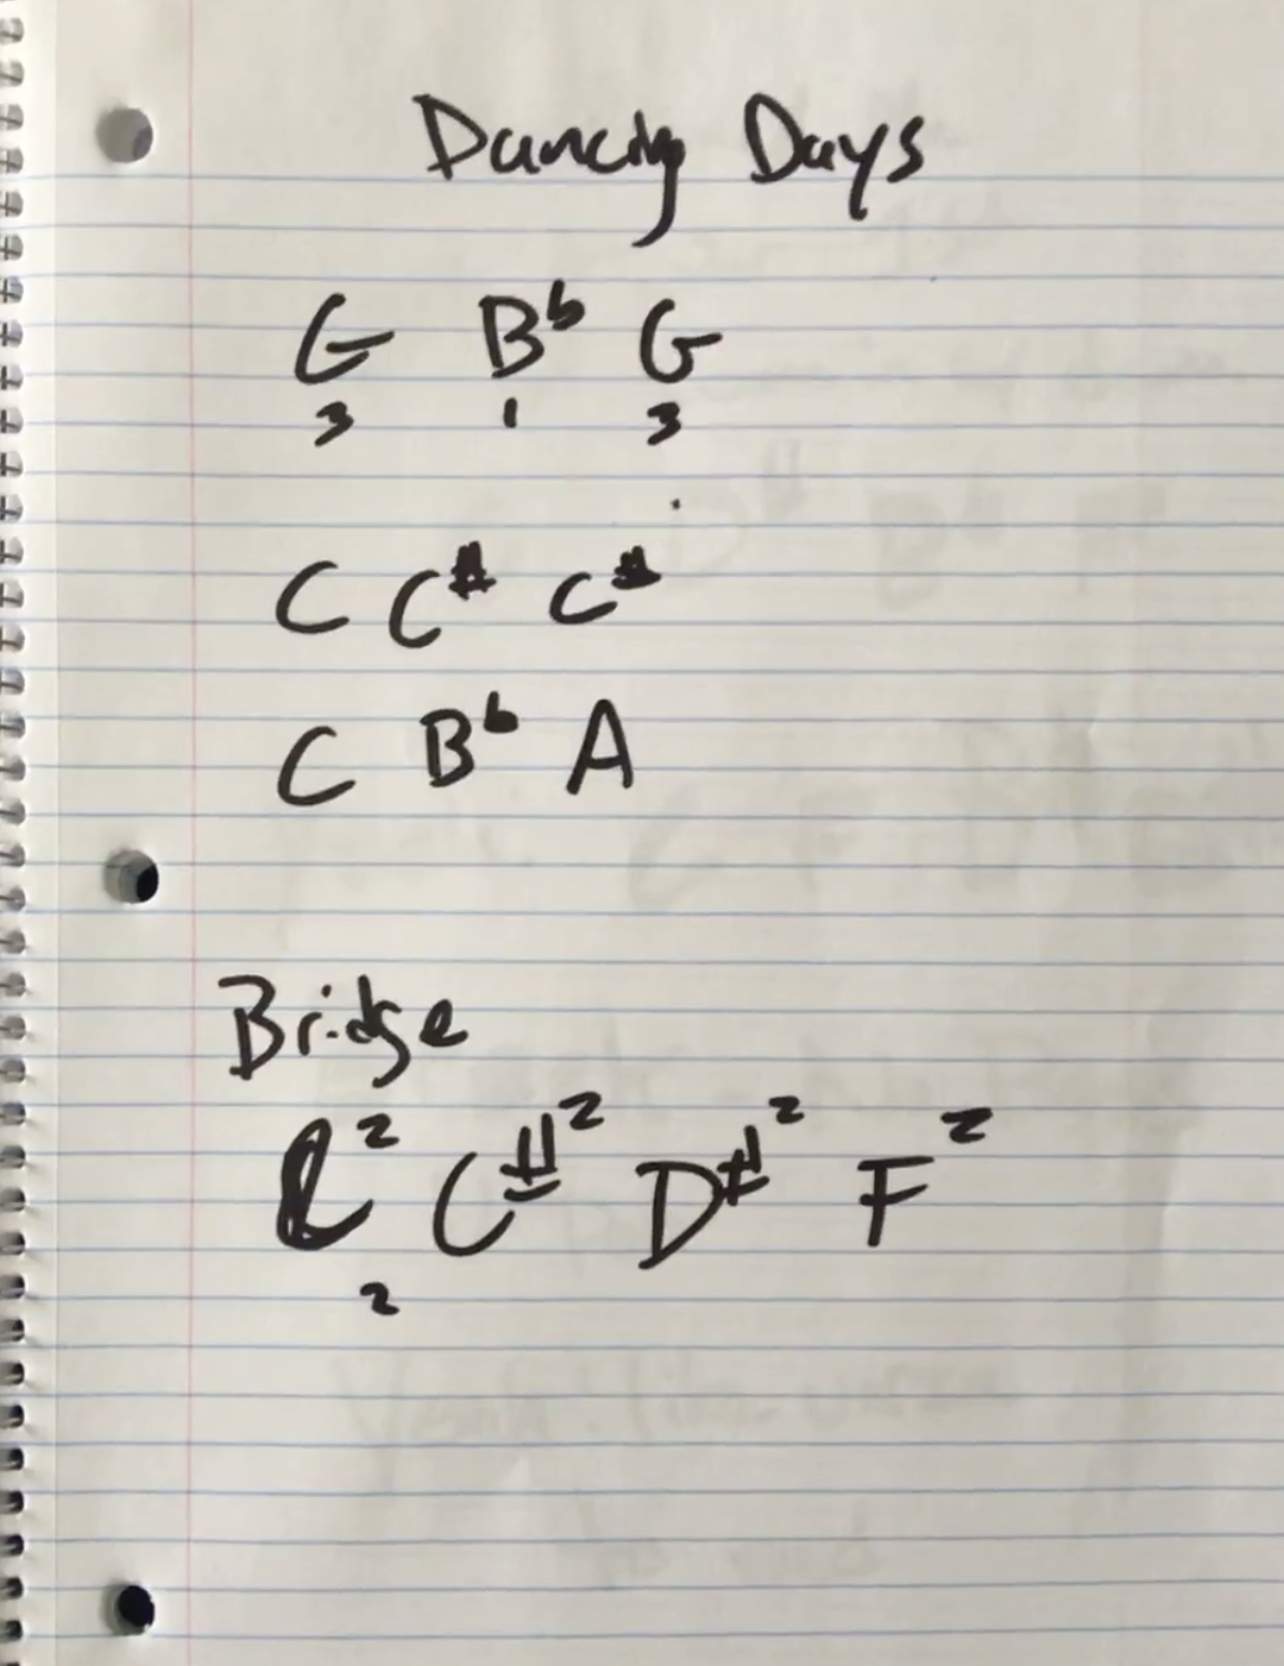 Dancing Days
G Bb G
3 1 3
C C# C#
C Bb A
Bridge
C2 C#2 D#2 F2
2